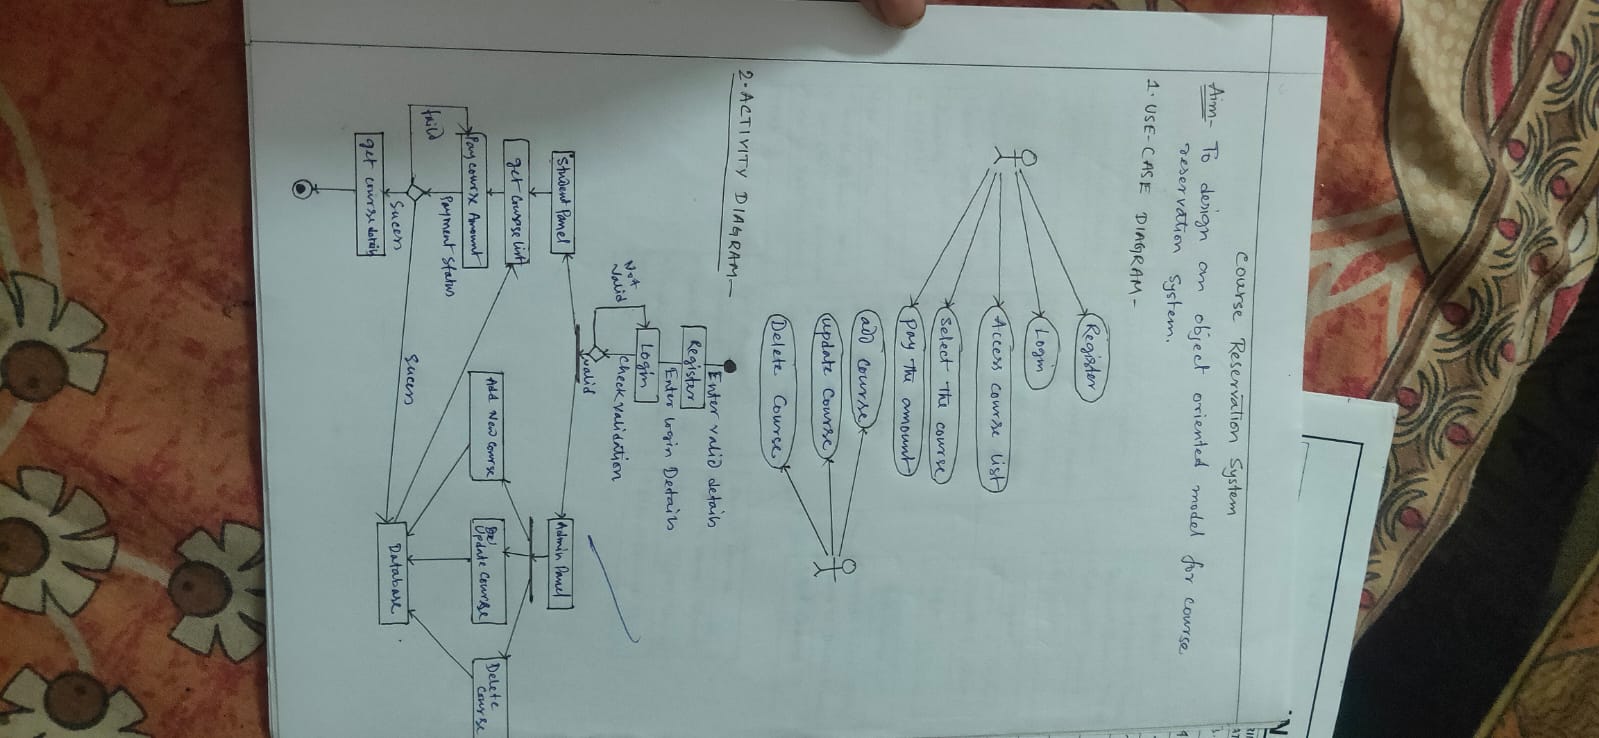 Course Reservation System
Aim- To design an object oriented model for course
reservation system.
1. USE-CASE DIAGRAM-
Register
Login
Access course list
Select the course
Pay the amount
add course
update course
Delete course
2. ACTIVITY DIAGRAM-
Enter valid details
Register
Enter login Details
Login
check validation
Not
valid
valid
Student Panel
Admin Panel
get Course List
Pay course Amount
Payment Status
faild
Sucess
Sucess
get course details
Add New Course
Update Course
Delete
Course
Database